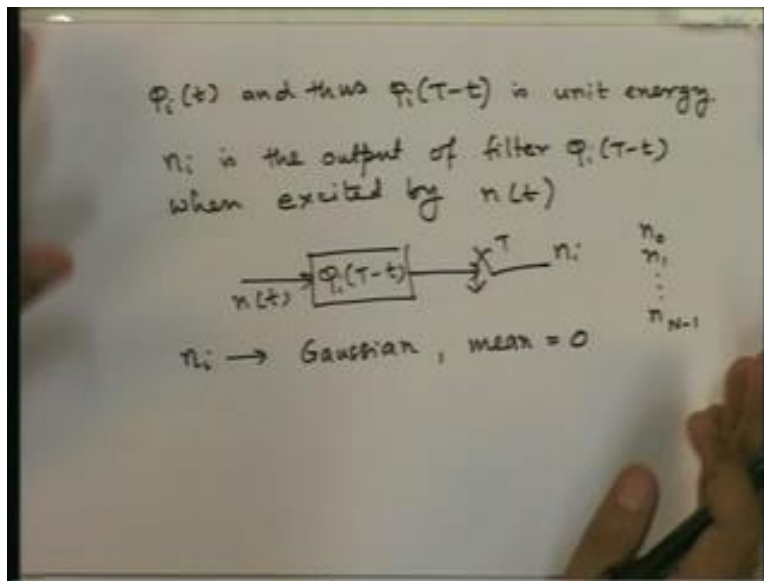 φᵢ(t) and thus φᵢ(T-t) is unit energy.
nᵢ is the output of filter φᵢ(T-t)
when excited by n(t)
n(t) φᵢ(T-t) T nᵢ
nᵢ → Gaussian, mean = 0
n₀
n₁
⋮
n_N-1